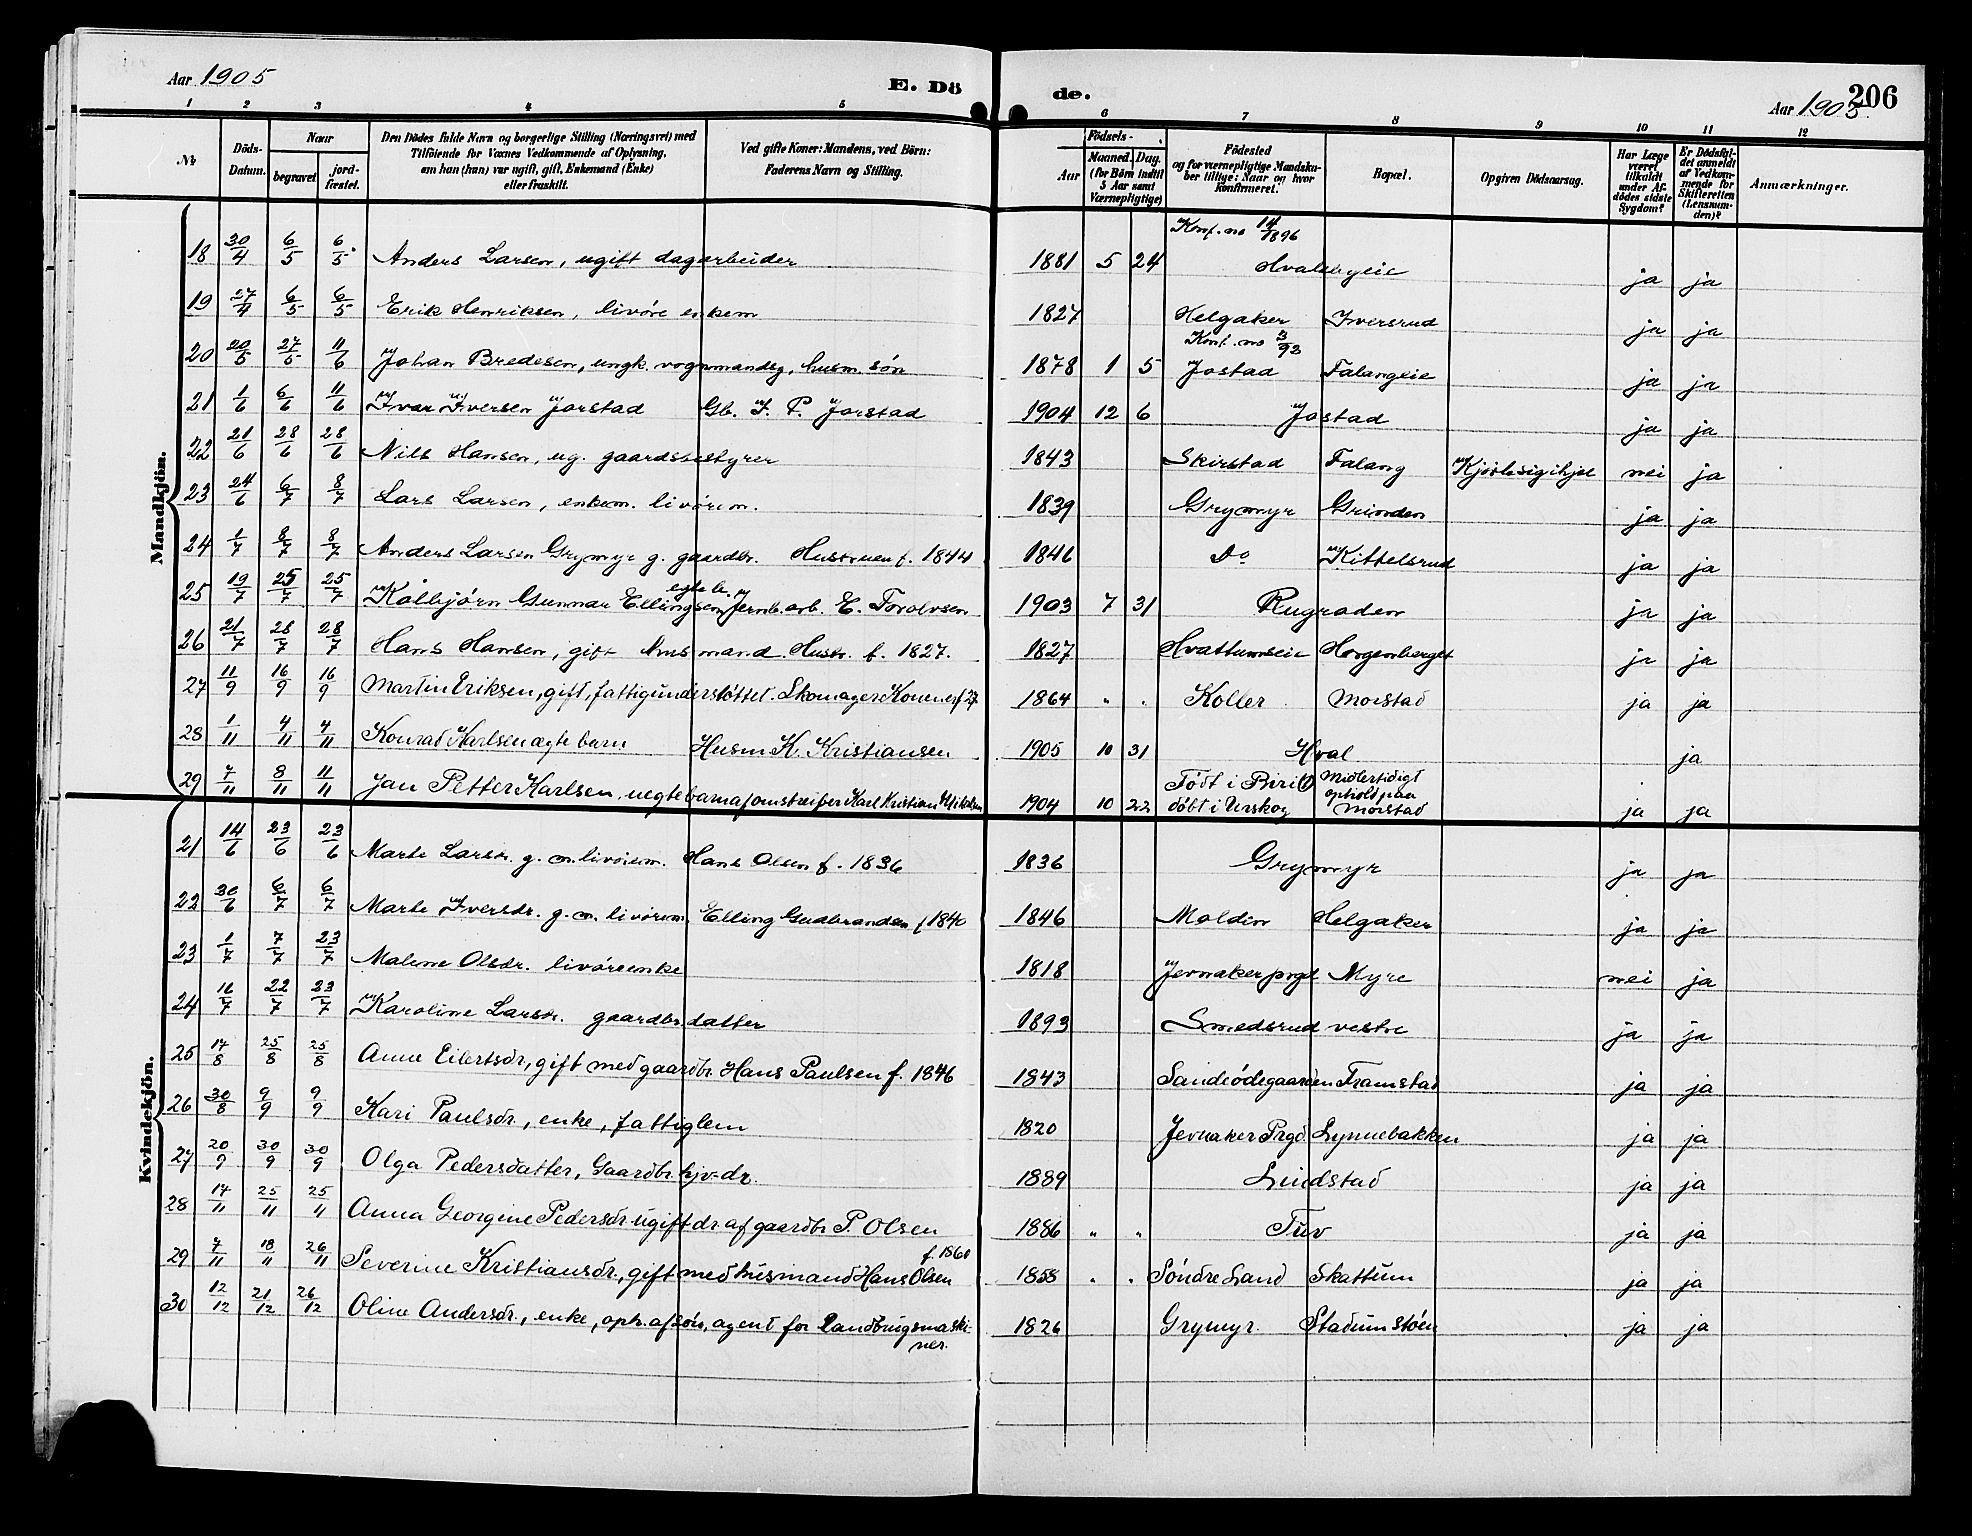 Aar 1905 E. Dö de. Aar 1905. 206
1 2 3 4 5 6 7 8 9 10 11 12
No
Döds-Datum.
Naar
begravet
jord-fæstet.
Den Dödes fulde Navn og borgerlige Stilling (Næringsvei) med
Tilföiende for Voxnes Vedkommende af Oplysning,
om han (hun) var ugift, gift, Enkemand (Enke)
eller fraskilt.
Ved gifte Koner: Mandens, ved Börn:
Faderens Navn og Stilling.
Födsels-
Aar
Maaned. Dag.
(for Börn indtil
5 Aar samt
Værnepligtige)
Födested
og for værnepligtige Mandsku-
ber tillige: Naar og hvor
Konfirmeret.
Bopæl.
Opgiven Dödsaarsag.
Har Læge
været
tilkaldt
under Af-
dödes sidste
Sygdom?
Er Dödsfal-
det anmeldt
af Vedkom-
mende for
Skifteretten
(Lensman-
den)?
Anmærkninger.
Mandkjön.
Konf. no 14/1896
18 30/4 6/5 6/5 Anders Larsen, ugift dagarbeider 1881 5 24 Hvalsbyeie ja ja
19 27/4 6/5 6/5 Erik Henriksen, livøre enkem 1827 Helgaker Iversrud ja ja
Konf. no 3/93
20 20/5 27/5 11/6 Johan Bredesen, ungk. vognmandsg, husm. søn 1878 1 5 Jostad Falangeie ja ja
21 1/6 6/6 11/6 Ivar Iversen Jorstad Gb. I. P. Jorstad 1904 12 6 Jostad ja ja
22 21/6 28/6 28/6 Nils Hansen, ug. gaardsbestyrer 1843 Skirstad Falang Kjørte sig ihjel nei ja
23 24/6 6/7 8/7 Lars Larsen, enkem. livørem. 1839 Grymyr Grinden ja ja
24 1/7 8/7 8/7 Anders Larsen Grymyr g. gaardbr. Hustruen f. 1844 1846 Do Kittelsrud ja ja
egte b.
25 19/7 25/7 25/7 Kolbjørn Gunnar Ellingsen Jernb. arb. E. Torolvsen 1903 7 31 Rugraden ja ja
26 21/7 28/7 28/7 Hans Hansen, gift husmand. Hustr. f. 1827. 1827 Hvattumseie Horgenberget ja ja
27 11/9 16/9 16/9 Martin Eriksen, gift, fattigunderstøttet. Skomager Konen er f. 27 1864 " " Koller Morstad ja ja
28 1/11 4/11 4/11 Konrad Karlsen ægte barn Husm K. Kristiansen 1905 10 31 Hval ja
29 7/11 8/11 11/11 Jan Petter Karlsen, uegte barn af omstreifer Karl Kristian 1904 10 22 Født i Biri døbt i Urskog Midlertidigt ophold paa Morstad ja ja
Kvindekjön.
21 14/6 23/6 23/6 Marte Larsdr. g. m. livørem. Hans Olsen f. 1836 1836 Grymyr ja ja
22 30/6 6/7 6/7 Marte Iversdr. g. m. livørem Elling Gudbrandsen f 1840 1846 Moldin Helgaker ja ja
23 1/7 7/7 23/7 Malene Olsdr. livøreenke 1818 Jevnaker prgd Myre nei ja
24 16/7 22/7 23/7 Karoline Larsdr. gaardbr datter 1893 Smedsrud vestre ja ja
25 17/8 25/8 25/8 Anne Eilertsdr, gift med gaardbr. Hans Paulsen f. 1846 1843 Sandeødegaarden Framstad ja ja
26 30/8 9/9 9/9 Kari Paulsdr, enke, fattiglem 1820 Jevnaker Prgd. Lynnebakken ja ja
27 20/9 30/9 30/9 Olga Pedersdatter, Gaardbr. hjv-dr. 1889 Lindstad ja ja
28 17/11 25/11 25/11 Anna Georgine Pedersdr. ugift dr. af gaardbr P. Olsen 1886 " " Tuv ja ja
f. 1860
29 7/11 18/11 26/11 Severine Kristiansdr., gift med husmand Hans Olsen 1858 " " Søndre Land Skattum ja ja
30 12/12 21/12 26/12 Oline Andersdr., enke, oph. af søn, agent for Landbrugsmaski-
ner. 1826 Grymyr. Stadumstøen ja ja